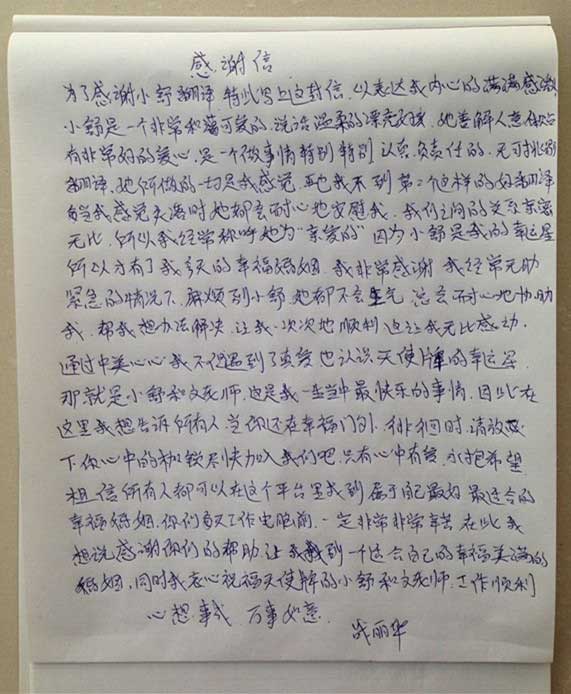 感谢信
为了感谢小舒翻译,特此写上这封信,以表达我内心的满满感激
小舒是一个非常和蔼可爱的,说话温柔的漂亮好妹,她善解人意
有非常好的爱心,是一个做事情特别特别认真,负责任的,无可挑剔
翻译,她所做的一切是我感觉再也找不到第二个这样的好翻译
每当我感觉失落时她都会耐心地安慰我,我们之间的关系亲密
无比,所以我经常称呼她为“亲爱的”因为小舒是我的幸运星
所以才有了我今天的幸福婚姻,我非常感谢,我经常无助
紧急的情况下,麻烦到小舒,她都不会生气,总会耐心地协助
我,帮我想办法解决,让我一次次地顺利,这让我无比感动,
通过中美心心我不仅遇到了真爱也认识天使牌的幸运星
那就是小舒和文老师,这是我一生当中最快乐的事情,因此在
这里我想告诉所有人,当你还在幸福门外,徘徊时,请放
下你心中的枷锁尽快加入我们吧,只有心中有爱,心抱希望
相信所有人都可以在这个平台里找到属于自己最好最适合的
幸福婚姻,你们每天工作电脑前,一定非常非常辛苦,在此我
想说感谢你们的帮助,让我找到一个适合自己的幸福美满的
婚姻,同时我衷心祝福天使牌的小舒和文老师,工作顺利
心想事成 万事如意.
丽华